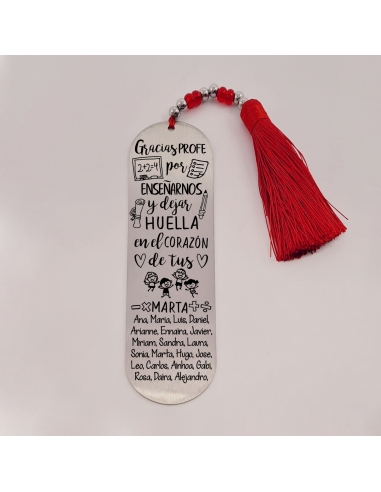 Gracias PROFE
2+2=4 por
ENSEÑARNOS
y dejar
HUELLA
en el CORAZÓN
de tus
-×MARTA+÷
Ana, Maria, Luis, Daniel,
Arianne, Ennaira, Javier,
Miriam, Sandra, Laura,
Sonia, Marta, Hugo, Jose,
Leo, Carlos, Ainhoa, Gabi,
Rosa, Daira, Alejandro,